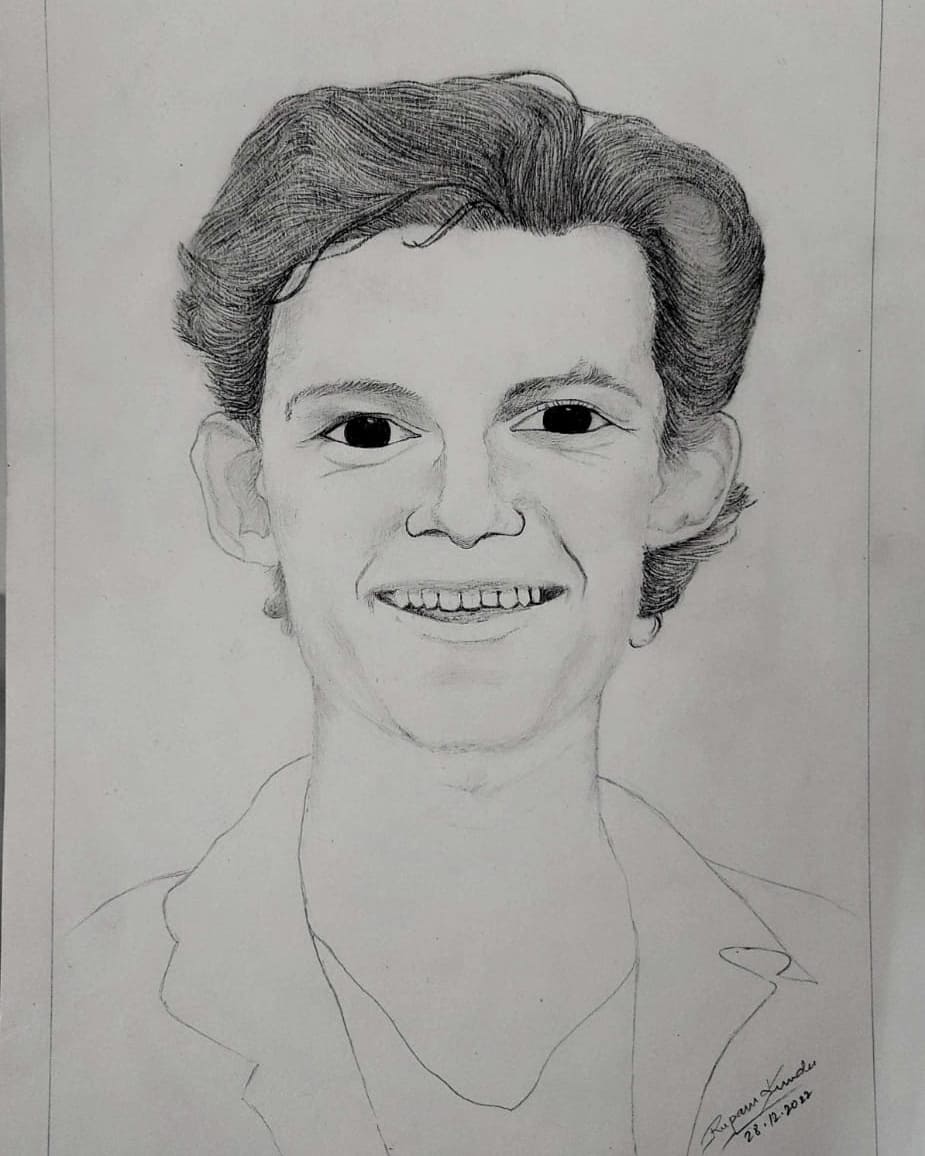 Rupam Kundu
28.12.2022